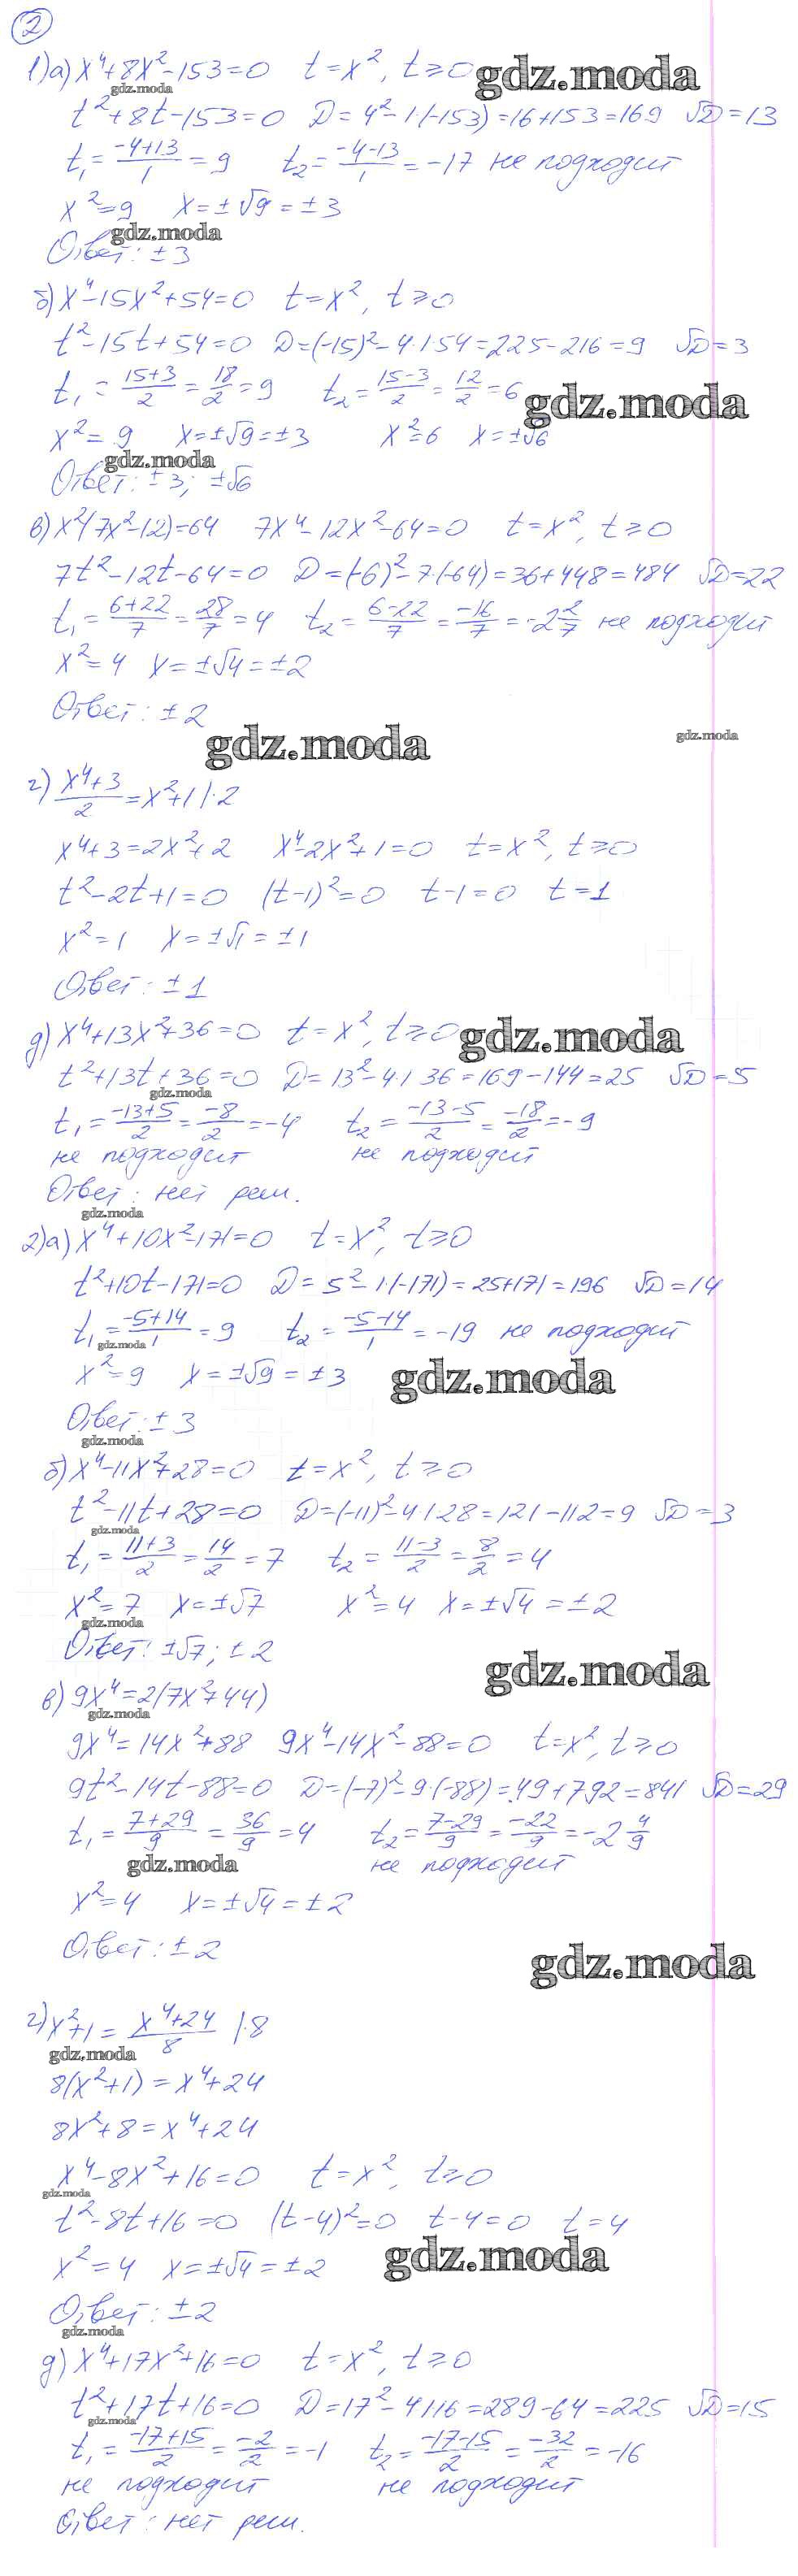 2
1) а) x⁴+8x²-153=0 t=x², t≥0
gdz.moda
gdz.moda
t²+8t-153=0 D=4²-1·(-153)=16+153=169 √D=13
t₁=(-4+13)/1=9 t₂=(-4-13)/1=-17 не подходит
x²=9 x=±√9=±3
gdz.moda
Ответ: ±3
б) x⁴-15x²+54=0 t=x², t≥0
t²-15t+54=0 D=(-15)²-4·1·54=225-216=9 √D=3
t₁=(15+3)/2=18/2=9 t₂=(15-3)/2=12/2=6
gdz.moda
x²=9 x=±√9=±3 x²=6 x=±√6
gdz.moda
Ответ: ±3; ±√6
в) x²(7x²-12)=64 7x⁴-12x²-64=0 t=x², t≥0
7t²-12t-64=0 D=(-6)²-7·(-64)=36+448=484 √D=22
t₁=(6+22)/7=28/7=4 t₂=(6-22)/7=-16/7=-2 2/7 не подходит
x²=4 x=±√4=±2
Ответ: ±2
gdz.moda
gdz.moda
г) (x⁴+3)/2=x²+1 |·2
x⁴+3=2x²+2 x⁴-2x²+1=0 t=x², t≥0
t²-2t+1=0 (t-1)²=0 t-1=0 t=1
x²=1 x=±√1=±1
Ответ: ±1
д) x⁴+13x²+36=0 t=x², t≥0
gdz.moda
t²+13t+36=0 D=13²-4·1·36=169-144=25 √D=5
gdz.moda
t₁=(-13+5)/2=-8/2=-4 t₂=(-13-5)/2=-18/2=-9
не подходит не подходит
Ответ: нет реш.
gdz.moda
2) а) x⁴+10x²-171=0 t=x², t≥0
t²+10t-171=0 D=5²-1·(-171)=25+171=196 √D=14
t₁=(-5+14)/1=9 t₂=(-5-14)/1=-19 не подходит
gdz.moda
x²=9 x=±√9=±3
gdz.moda
Ответ: ±3
gdz.moda
б) x⁴-11x²+28=0 t=x², t≥0
t²-11t+28=0 D=(-11)²-4·1·28=121-112=9 √D=3
gdz.moda
t₁=(11+3)/2=14/2=7 t₂=(11-3)/2=8/2=4
x²=7 x=±√7 x²=4 x=±√4=±2
gdz.moda
Ответ: ±√7; ±2
gdz.moda
в) 9x⁴=2(7x²+44)
gdz.moda
9x⁴=14x²+88 9x⁴-14x²-88=0 t=x², t≥0
9t²-14t-88=0 D=(-7)²-9·(-88)=49+792=841 √D=29
t₁=(7+29)/9=36/9=4 t₂=(7-29)/9=-22/9=-2 4/9
gdz.moda
не подходит
x²=4 x=±√4=±2
Ответ: ±2
gdz.moda
г) x²+1=(x⁴+24)/8 |·8
gdz.moda
8(x²+1)=x⁴+24
8x²+8=x⁴+24
x⁴-8x²+16=0 t=x², t≥0
gdz.moda
t²-8t+16=0 (t-4)²=0 t-4=0 t=4
x²=4 x=±√4=±2
gdz.moda
Ответ: ±2
gdz.moda
д) x⁴+17x²+16=0 t=x², t≥0
t²+17t+16=0 D=17²-4·1·16=289-64=225 √D=15
gdz.moda
t₁=(-17+15)/2=-2/2=-1 t₂=(-17-15)/2=-32/2=-16
не подходит не подходит
Ответ: нет реш.